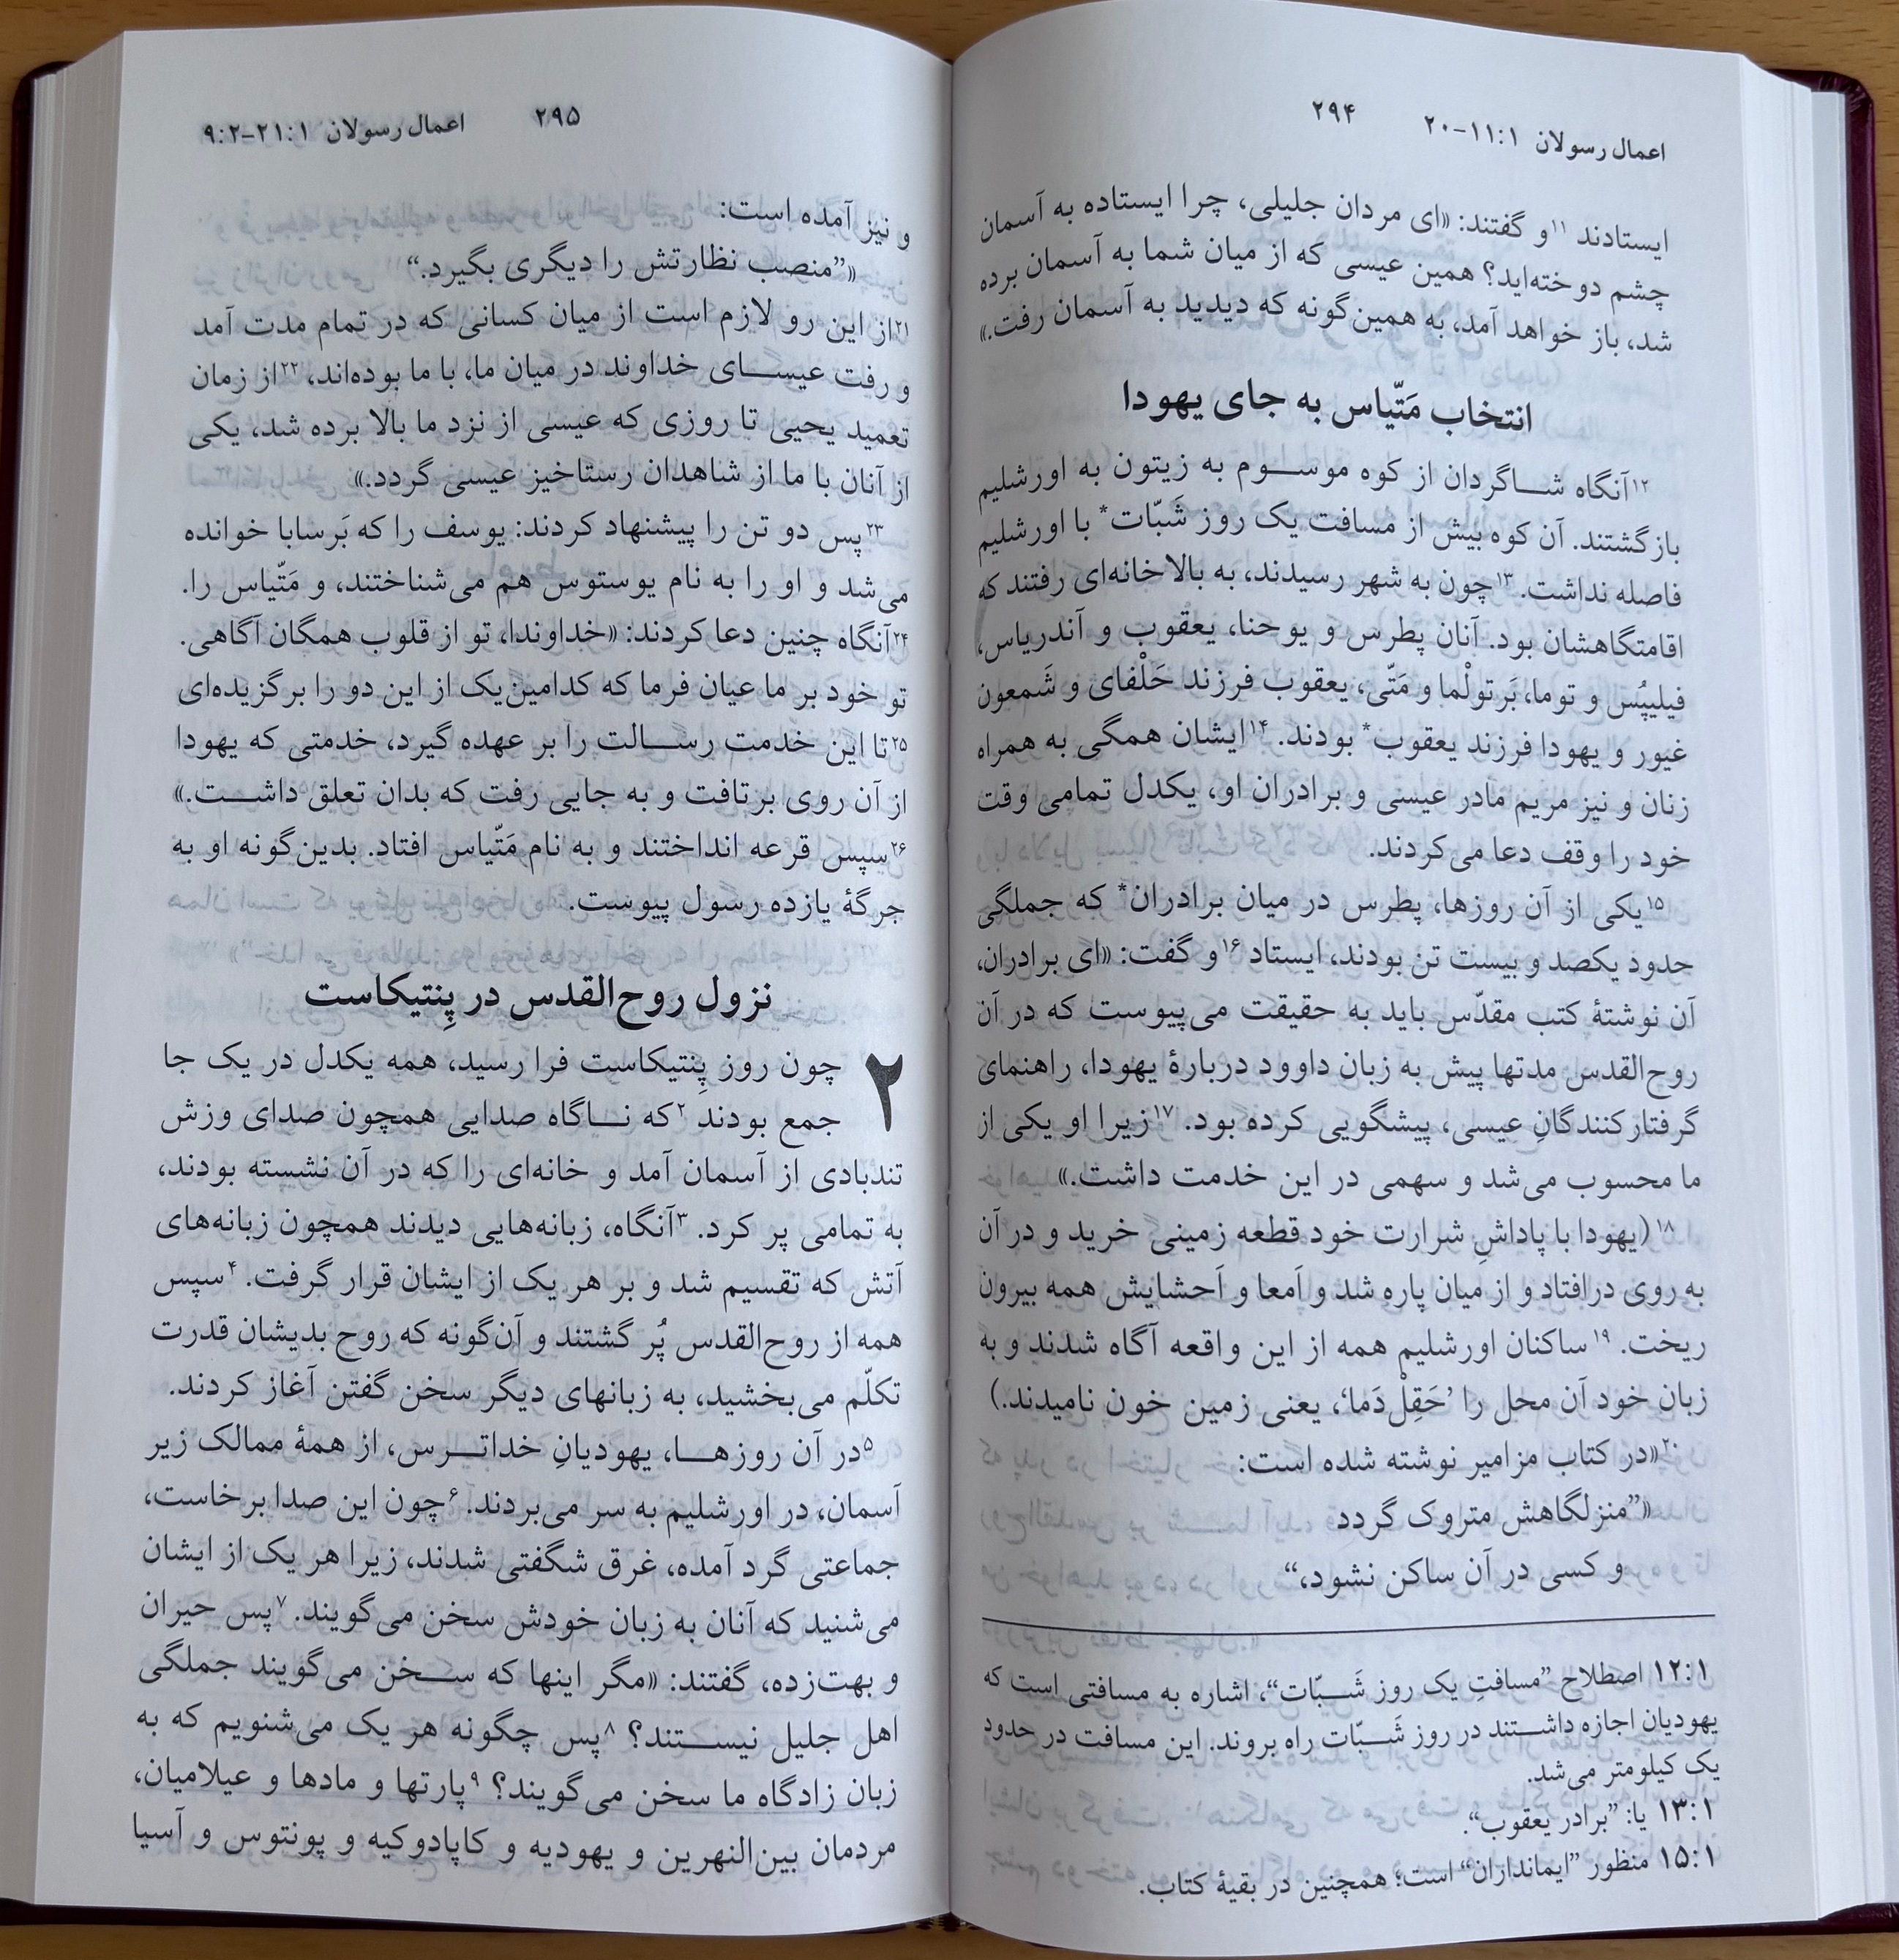 اعمال رسولان ۱‏:۱۱‏-۲۰ ۲۹۴
ایستادند ۱۱و گفتند: «ای مردان جلیلی، چرا ایستاده به آسمان
چشم دوخته‌اید؟ همین عیسی که از میان شما به آسمان برده
شد، باز خواهد آمد، به همین‌گونه که دیدید به آسمان رفت.»
انتخاب مَتّیاس به جای یهودا
۱۲آنگاه شاگردان از کوه موسوم به زیتون به اورشلیم
بازگشتند. آن کوه بیش از مسافت یک روز شَبّات* با اورشلیم
فاصله نداشت. ۱۳چون به شهر رسیدند، به بالاخانه‌ای رفتند که
اقامتگاهشان بود. آنان پطرس و یوحنا، یعقوب و آندریاس،
فیلیپُس و توما، بَرتولْما و مَتّی، یعقوب فرزند حَلْفای و شَمعون
غیور و یهودا فرزند یعقوب* بودند. ۱۴ایشان همگی به همراه
زنان و نیز مریم مادر عیسی و برادران او، یکدل تمامی وقت
خود را وقف دعا می‌کردند.
۱۵یکی از آن روزها، پطرس در میان برادران* که جملگی
حدود یکصد و بیست تن بودند، ایستاد ۱۶و گفت: «ای برادران،
آن نوشتهٔ کتب مقدّس باید به حقیقت می‌پیوست که در آن
روح‌القدس مدتها پیش به زبان داوود دربارهٔ یهودا، راهنمای
گرفتارکنندگانِ عیسی، پیشگویی کرده بود. ۱۷زیرا او یکی از
ما محسوب می‌شد و سهمی در این خدمت داشت.»
۱۸(یهودا با پاداشِ شرارت خود قطعه زمینی خرید و در آن
به روی درافتاد و از میان پاره شد و اَمعا و اَحشایش همه بیرون
ریخت. ۱۹ساکنان اورشلیم همه از این واقعه آگاه شدند و به
زبان خود آن محل را ’حَقِلْ دَما‘، یعنی زمین خون نامیدند.)
۲۰«در کتاب مزامیر نوشته شده است:
«”منزلگاهش متروک گردد
و کسی در آن ساکن نشود،“
۱۲:۱ اصطلاح ”مسافتِ یک روز شَبّات“، اشاره به مسافتی است که
یهودیان اجازه داشتند در روز شَبّات راه بروند. این مسافت در حدود
یک کیلومتر می‌شد.
۱۳:۱ یا: ”برادر یعقوب“.
۱۵:۱ منظور ”ایمانداران“ است؛ همچنین در بقیهٔ کتاب.
۲۹۵ اعمال رسولان ۱‏:۲۱‏-۲‏:۹
و نیز آمده است:
«”منصب نظارتش را دیگری بگیرد.“
۲۱از این رو لازم است از میان کسانی که در تمام مدت آمد
و رفت عیسای خداوند در میان ما، با ما بوده‌اند، ۲۲از زمان
تعمید یحیی تا روزی که عیسی از نزد ما بالا برده شد، یکی
از آنان با ما از شاهدان رستاخیز عیسی گردد.»
۲۳پس دو تن را پیشنهاد کردند: یوسف را که بَرسابا خوانده
می‌شد و او را به نام یوستوس هم می‌شناختند، و مَتّیاس را.
۲۴آنگاه چنین دعا کردند: «خداوندا، تو از قلوب همگان آگاهی.
تو خود بر ما عیان فرما که کدامین‌یک از این دو را برگزیده‌ای
۲۵تا این خدمت رسالت را بر عهده گیرد، خدمتی که یهودا
از آن روی برتافت و به جایی رفت که بدان تعلق داشت.»
۲۶سپس قرعه انداختند و به نام مَتّیاس افتاد. بدین‌گونه او به
جرگهٔ یازده رسول پیوست.
نزول روح‌القدس در پِنتیکاست
۲ چون روز پِنتیکاست فرا رسید، همه یکدل در یک جا
جمع بودند ۲که ناگاه صدایی همچون صدای وزش
تندبادی از آسمان آمد و خانه‌ای را که در آن نشسته بودند،
به تمامی پر کرد. ۳آنگاه، زبانه‌هایی دیدند همچون زبانه‌های
آتش که تقسیم شد و بر هر یک از ایشان قرار گرفت. ۴سپس
همه از روح‌القدس پُر گشتند و آن‌گونه که روح بدیشان قدرت
تکلّم می‌بخشید، به زبانهای دیگر سخن گفتن آغاز کردند.
۵در آن روزها، یهودیانِ خداترس، از همهٔ ممالک زیر
آسمان، در اورشلیم به سر می‌بردند. ۶چون این صدا برخاست،
جماعتی گرد آمده، غرق شگفتی شدند، زیرا هر یک از ایشان
می‌شنید که آنان به زبان خودش سخن می‌گویند. ۷پس حیران
و بهت‌زده، گفتند: «مگر اینها که سخن می‌گویند جملگی
اهل جلیل نیستند؟ ۸پس چگونه هر یک می‌شنویم که به
زبان زادگاه ما سخن می‌گویند؟ ۹پارتها و مادها و عیلامیان،
مردمان بین‌النهرین و یهودیه و کاپادوکیه و پونتوس و آسیا